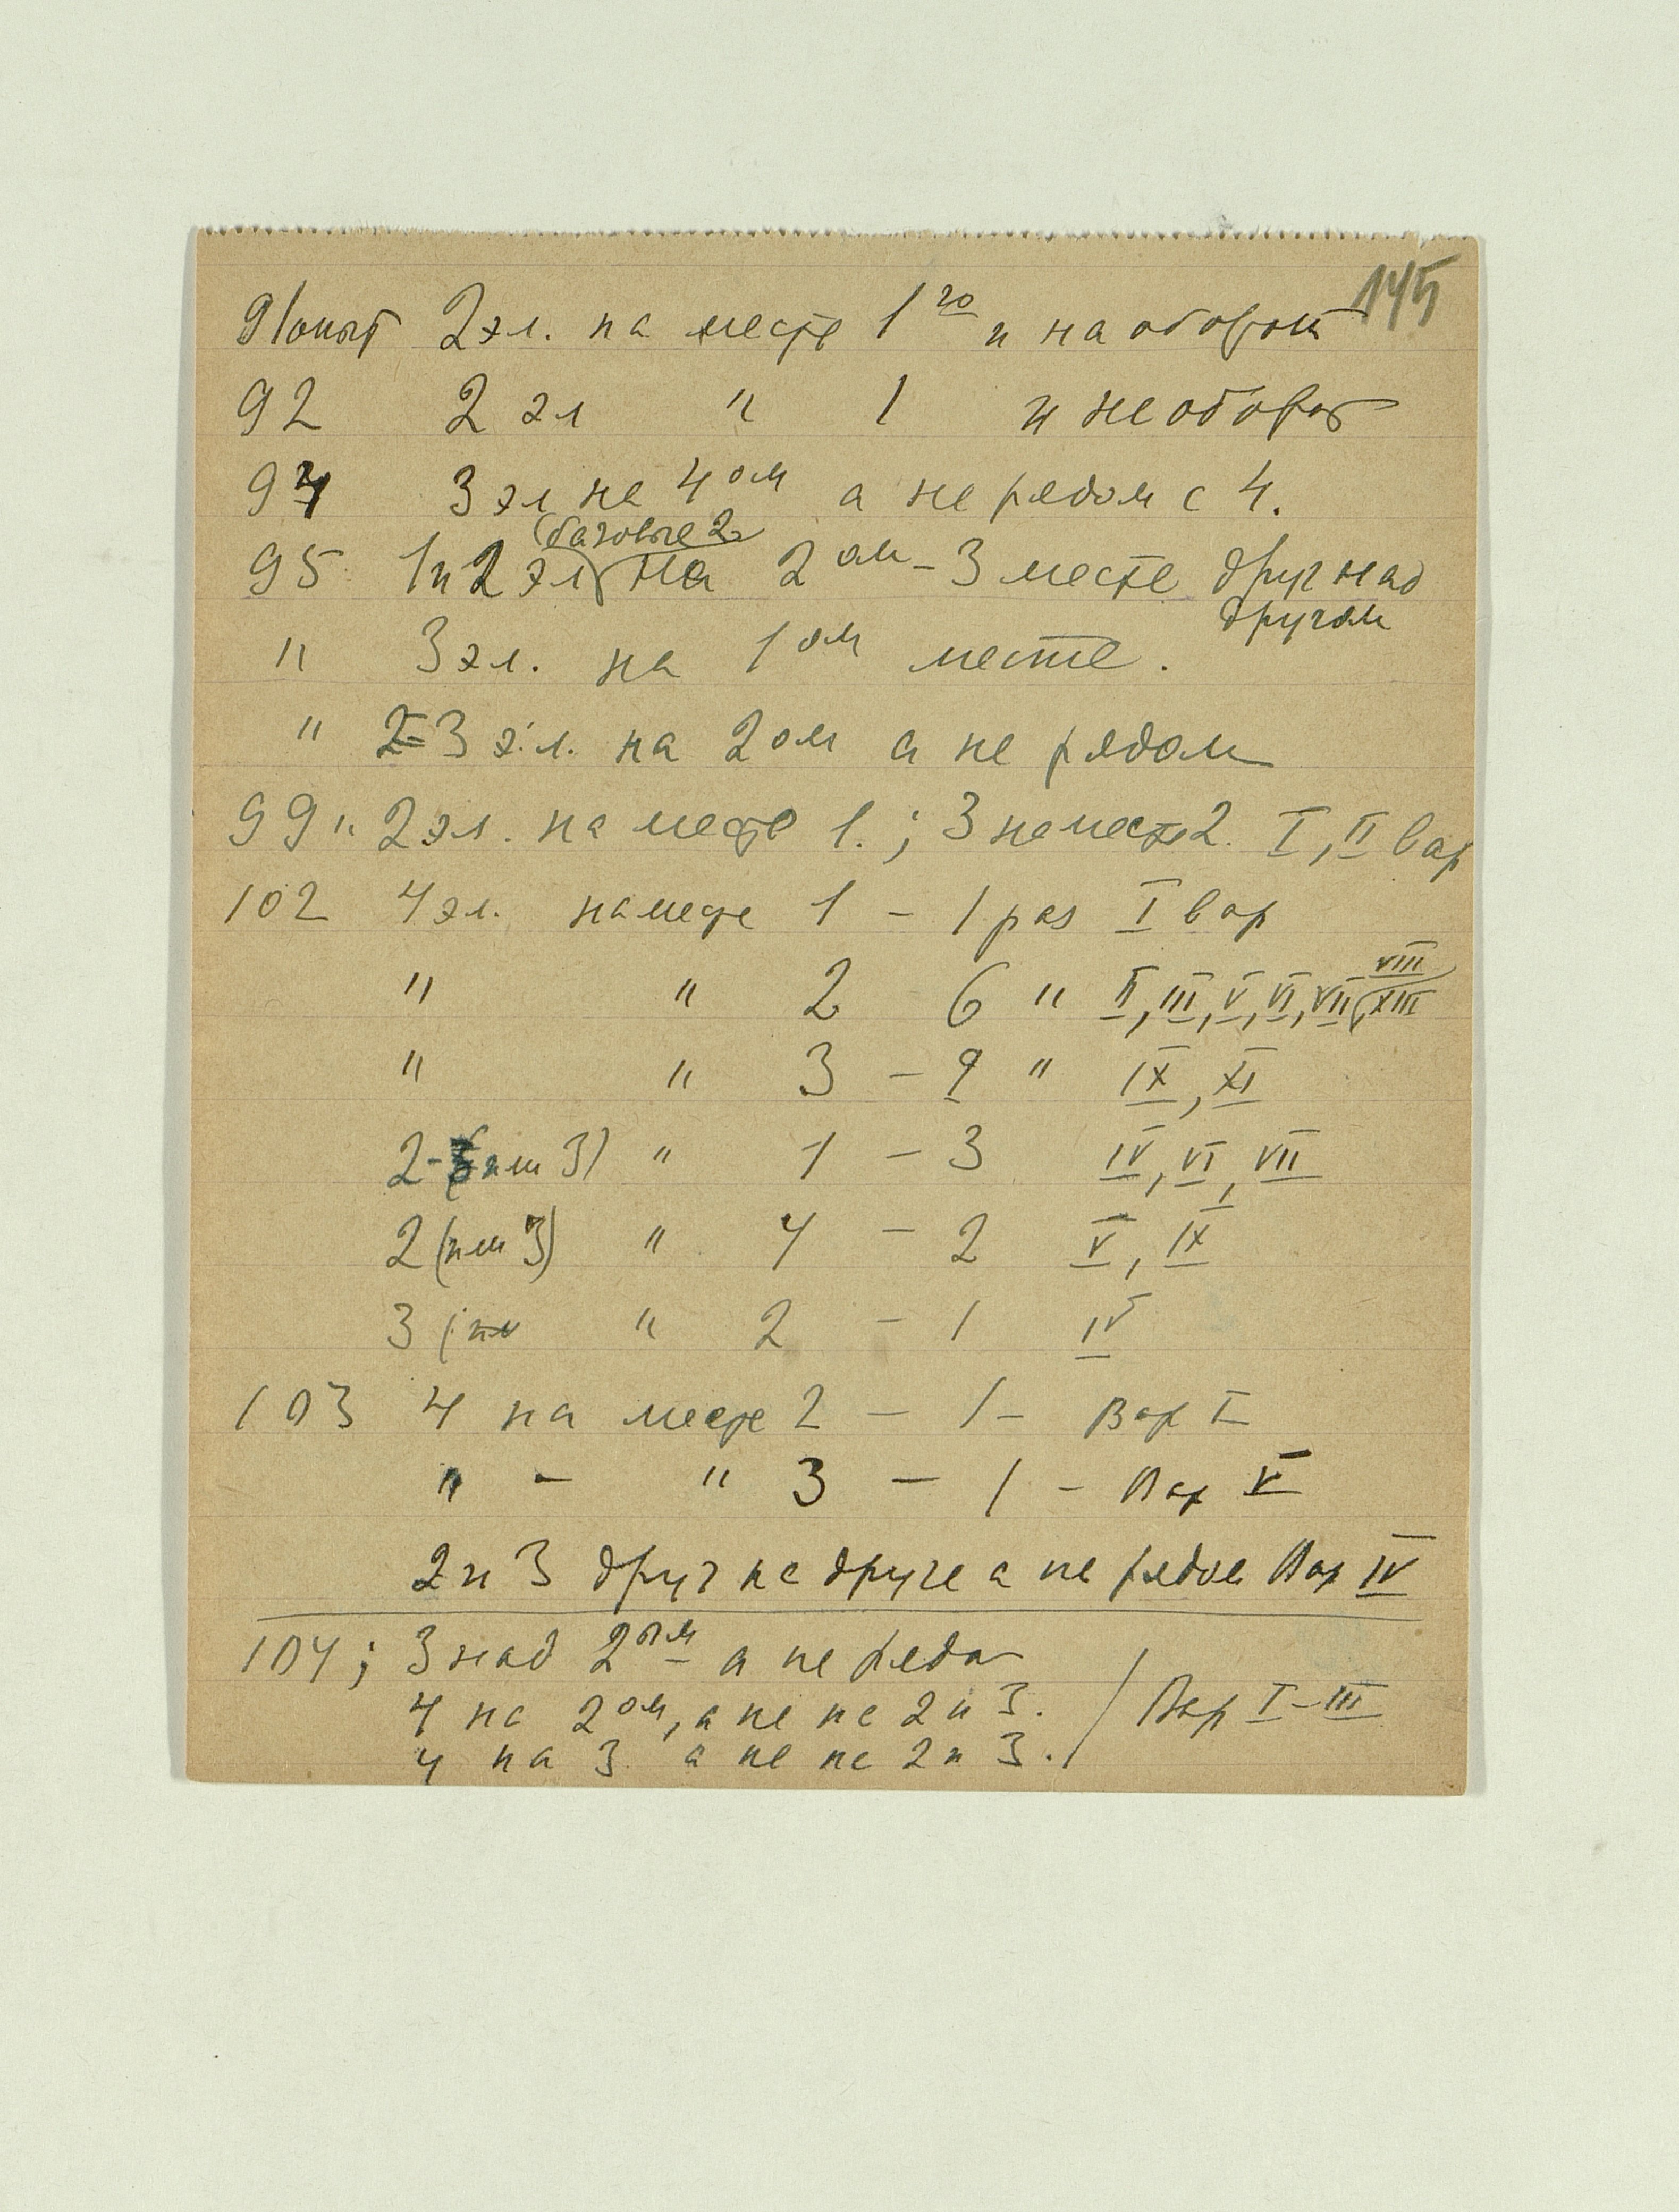 145
91 опыт 2 эл. на месте 1го и на оборот
92 2 эл " 1 и на оборот
94 3 эл на 4ом а не рядом с 4.
(базовые 2
95 1 и 2 эл) на 2ом - 3 месте друг над
другом
" 3 эл. на 1ом месте.
" 2-3 эл. на 2ом а не рядом
99 " 2 эл. на месте 1.; 3 на месте 2. I, II вар
102 4 эл. на месте 1 - 1 раз I вар
VIII
" " 2 6 " II, III, V, VI, VII, XIII
" " 3 - 2 " IX, XI
2-(или 3) " 1 - 3 IV, VI, VII
2 (или 3) " 4 - 2 V, IX
3 " 2 - 1 IV
103 4 на месте 2 - 1 - Вар I
" - " 3 - 1 - Вар V
2 и 3 друг на друге а не рядом Вар IV
104; 3 над 2ом а не рядом
4 на 2ом, а не на 2 и 3. / Вар I-III
4 на 3 а не на 2 и 3.